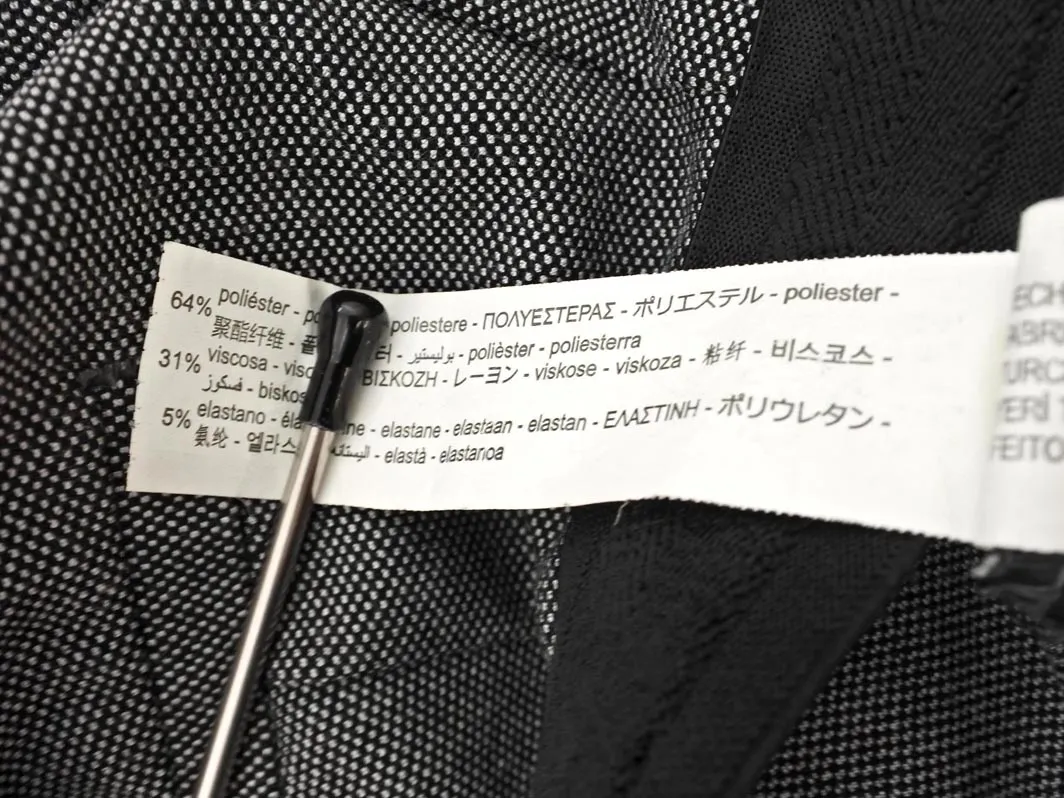 64% poliéster - poliestere - ΠΟΛΥΕΣΤΕΡΑΣ - ポリエステル - poliester -
聚酯纤维 - 터 - بوليستير - polièster - poliesterra
31% viscosa - ΒΙΣΚΟΖΗ - レーヨン - viskose - viskoza - 粘纤 - 비스코스 -
فسكوز -
5% elastano - elastane - elastaan - elastan - ΕΛΑΣΤΙΝΗ - ポリウレタン -
氨纶 - اليستانه - elastà - elastanoa
FEITO